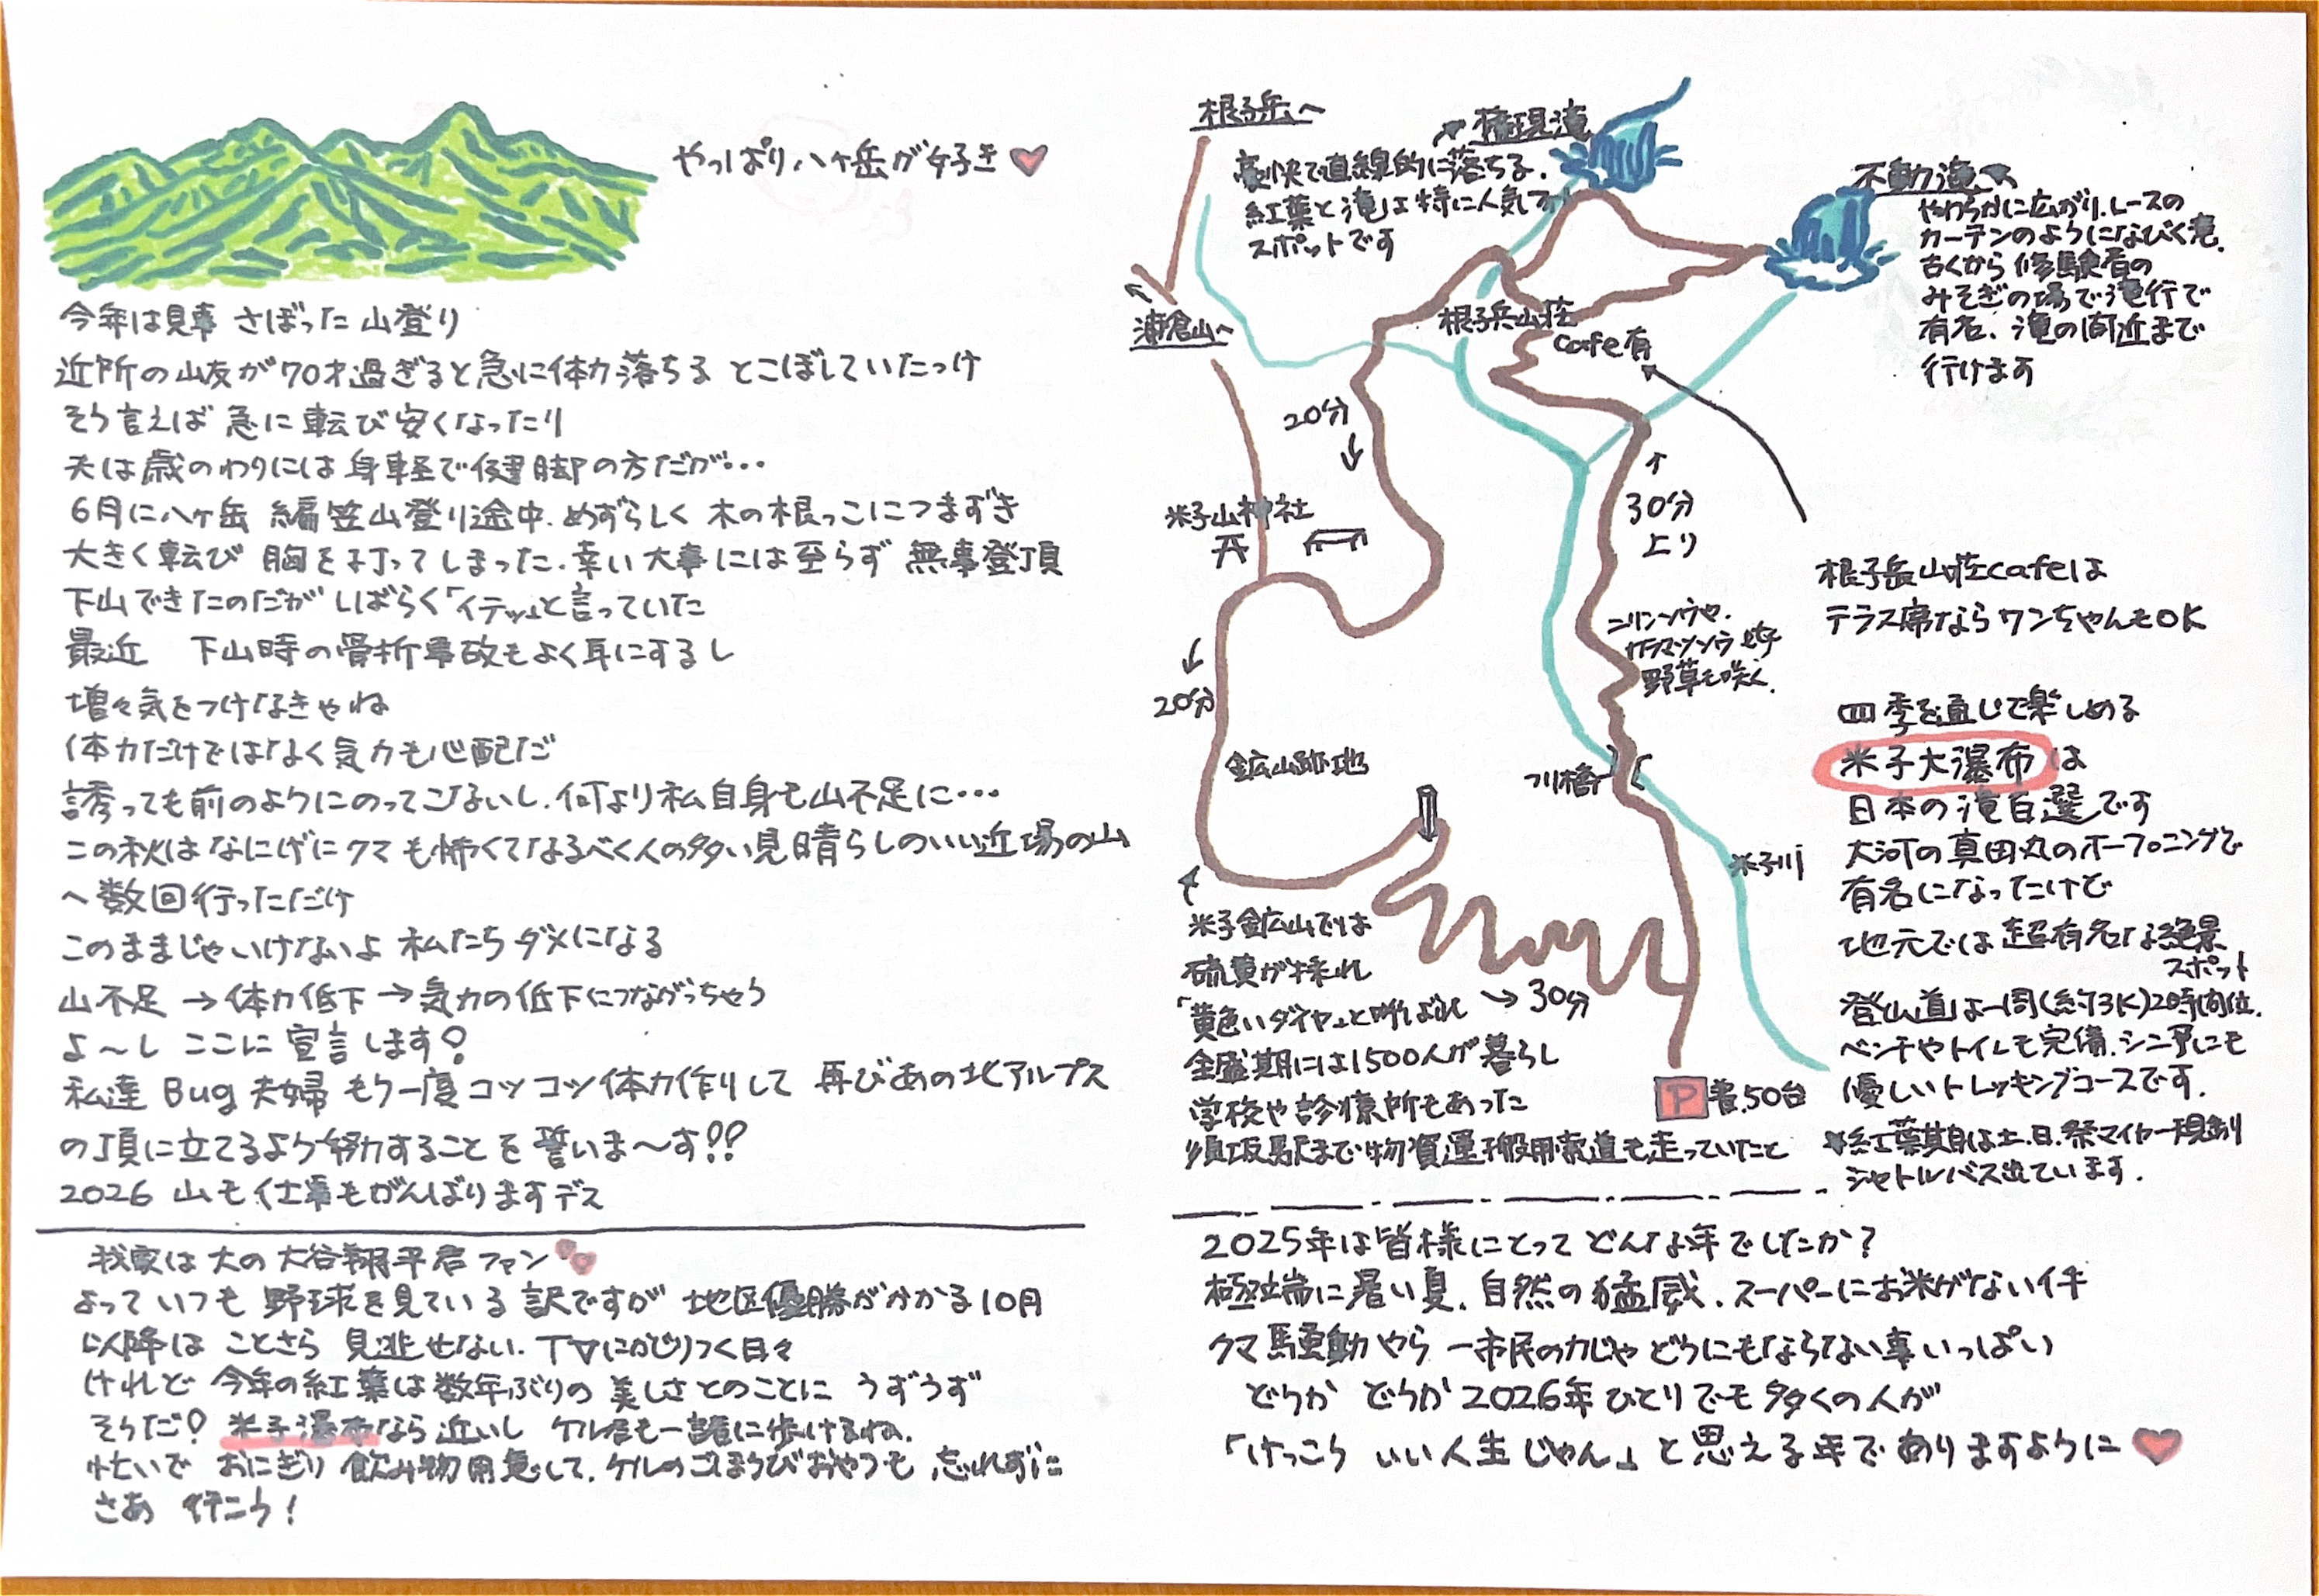 やっぱり八ヶ岳が好き
今年は見事 さぼった山登り
近所の山友が70才過ぎると急に体力落ちる とこぼしていたっけ
そう言えば 急に 転び安くなったり
夫は歳のわりには身軽で健脚の方だが…
6月に八ヶ岳 編笠山登り途中、めずらしく 木の根っこにつまずき
大きく転び 胸を打ってしまった、幸い大事には至らず 無事登頂
下山できたのだが しばらく「イテッ」と言っていた
最近 下山時の骨折事故もよく耳にするし
増々気をつけなきゃね
体力だけではなく気力も心配だ
誘っても前のようにのってこないし、何より私自身も山不足に…
この秋はなにげにクマも怖くてなるべく人の多い見晴らしのいい近場の山
へ数回行っただけ
このままじゃいけないよ 私たちダメになる
山不足→体力低下→気力の低下につながっちゃう
よ〜し ここに宣言します!
私達 Bug夫婦 もう一度コツコツ体力作りして 再びあの北アルプス
の頂に立てるよう努力することを誓いま〜す!!
2026 山も仕事もがんばりますデス
我家は大の大谷翔平君ファン
よっていつも 野球を見ている訳ですが 地区優勝がかかる10月
以降は ことさら 見逃せない、TVにかじりつく日々
けれど 今年の紅葉は数年ぶりの美しさとのことに うずうず
そうだ! 米子瀑布なら近いし ケル君も一諸に歩けるね、
忙いで おにぎり 飲み物用意して、ケルのごほうびおやつも 忘れずに
さあ 行こう!
根子岳へ
権現滝
豪快で直線的に落ちる、
紅葉と滝は特に人気
スポットです
不動滝
やわらかに広がり、レースの
カーテンのようになびく滝、
古くから修験者の
みそぎの場で滝行で
有名、滝の間近まで
行けます
浦倉山へ
根子岳山荘
cafe有
20分
30分
上り
米子山神社
根子岳山荘cafeは
テラス席ならワンちゃんもOK
ニリンソウや、
カラマツソウ
野草も咲く、
20分
鉱山跡地
つり橋
米子川
四季を通じて楽しめる
米子大瀑布は
日本の滝百選です
大河の真田丸のオープニングで
有名になったけど
地元では超有名な絶景
スポット
登山道は一周(約3K)2時間位、
ベンチやトイレも完備、シニアにも
優しいトレッキングコースです、
紅葉期は土、日、祭マイカー規制
シャトルバス出ています、
米子鉱山では
硫黄が採れ
「黄色いダイヤ」と呼ばれ
全盛期には1500人が暮らし
学校や診療所もあった
須坂駅まで物資運搬用索道も走っていたと
30分
P 50台
2025年は皆様にとって どんな年でしたか?
極端に暑い夏、自然の猛威、スーパーにお米がないイキ
クマ騒動やら 一市民の力じゃ どうにもならない事いっぱい
どうか どうか 2026年ひとりでも多くの人が
「けっこう いい人生じゃん」と思える年でありますように